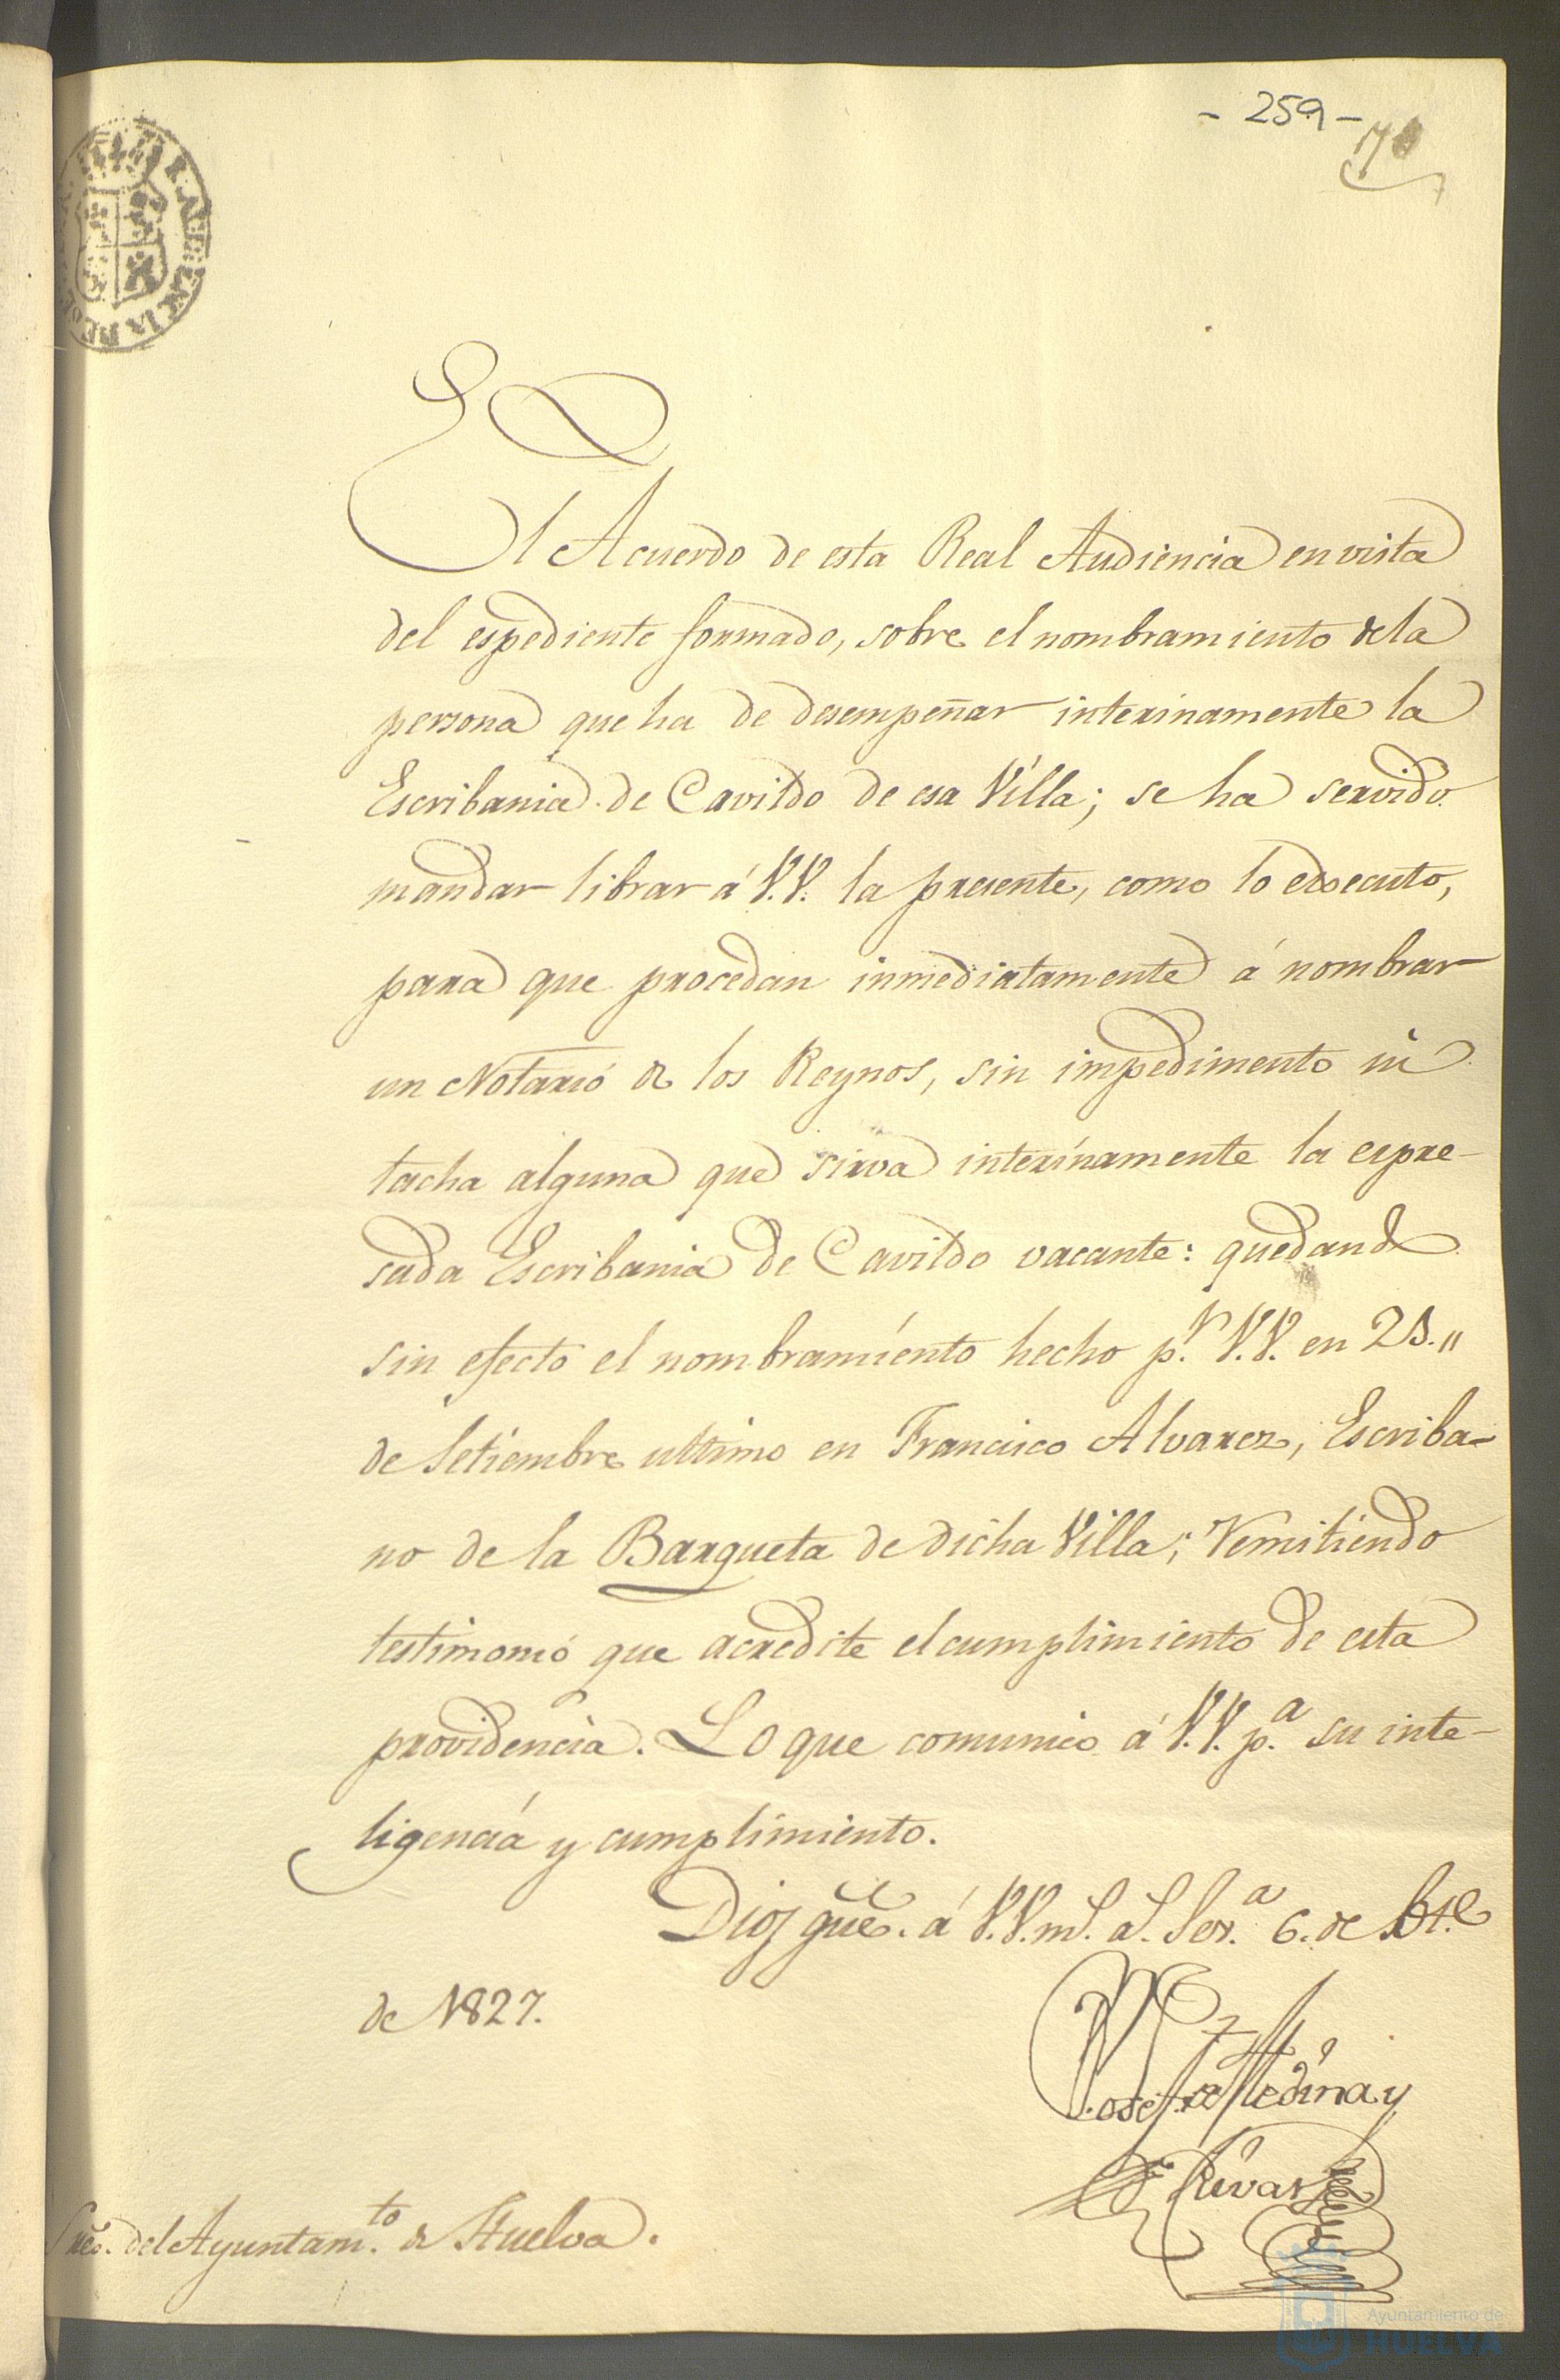 - 259 -
El Acuerdo de esta Real Audiencia en vista
del espediente formado, sobre el nombramiento de la
persona que ha de desempeñar interinamente la
Escribania de Cavildo de esa Villa; se ha servido
mandar librar á V.V. la presente, como lo executo,
para que procedan inmediatamente á nombrar
un Notario de los Reynos, sin impedimento ni
tacha alguna que sirva interinamente la expre-
sada Escribania de Cavildo vacante: quedando
sin efecto el nombramiento hecho p.r V.V. en 25."
de Setiembre ultimo en Francisco Alvarez, Escriba-
no de la Barqueta de dicha Villa; Remitiendo
testimonio que acredite el cumplimiento de esta
providencia. Lo que comunico á V.V. p.a su inte-
ligencia y cumplimiento.
Dios gue. á V.V. m.s a.s Sev.a 6. de
de 1827.
Josef de Medina y
Rivas
Sres. del Ayuntam.to de Huelva.
Ayuntamiento de
HUELVA